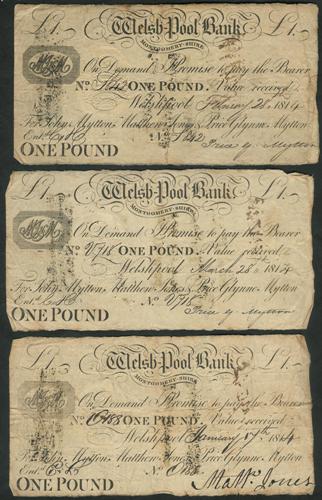 £1. Welsh Pool Bank £1.
MONTGOMERY-SHIRE
MJ&M
On Demand I Promise to pay the Bearer
No. ONE POUND. Value received
Welshpool February 28 1814
For John Mytton, Matthew Jones & Price Glynne Mytton
Entd. No.
ONE POUND Price G. Mytton
£1. Welsh Pool Bank £1.
MONTGOMERY-SHIRE
MJ&M
On Demand I Promise to pay the Bearer
No. V718 ONE POUND. Value received
Welshpool March 28 1814
For John Mytton, Matthew Jones & Price Glynne Mytton
Entd. No. V718
ONE POUND Price G. Mytton
£1. Welsh Pool Bank £1.
MONTGOMERY-SHIRE
MJ&M
On Demand I Promise to pay the Bearer
No. ONE POUND. Value received
Welshpool January 17th 1814
For John Mytton, Matthew Jones & Price Glynne Mytton
Entd. No.
ONE POUND Mattw. Jones